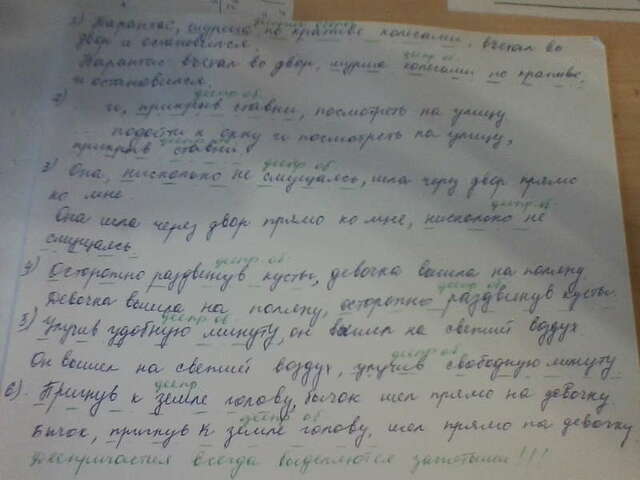 1) Тарантас, шурша по крапиве колесами, въехал во
двор и остановился.
деепр об.
Тарантас въехал во двор, шурша колесами по крапиве,
и остановился.
деепр об.
2) прикрыв ставни, посмотреть на улицу
деепр об.
подойти к окну и посмотреть на улицу,
прикрыв ставни.
деепр об.
3) Она, нисколько не смущаясь, шла через двор прямо
ко мне.
деепр об.
Она шла через двор прямо ко мне, нисколько не
смущаясь
деепр об.
4) Осторожно раздвинув кусты, девочка вышла на поляну
деепр об.
Девочка вышла на поляну, осторожно раздвинув кусты.
деепр об.
5) Улучив удобную минуту, он вышел на свежий воздух.
деепр об.
Он вышел на свежий воздух, улучив свободную минуту.
деепр
6). Пригнув к земле голову, бычок шел прямо на девочку.
деепр об
Бычок, пригнув к земле голову, шел прямо на девочку
Деепричастия всегда выделяются запятыми!!!